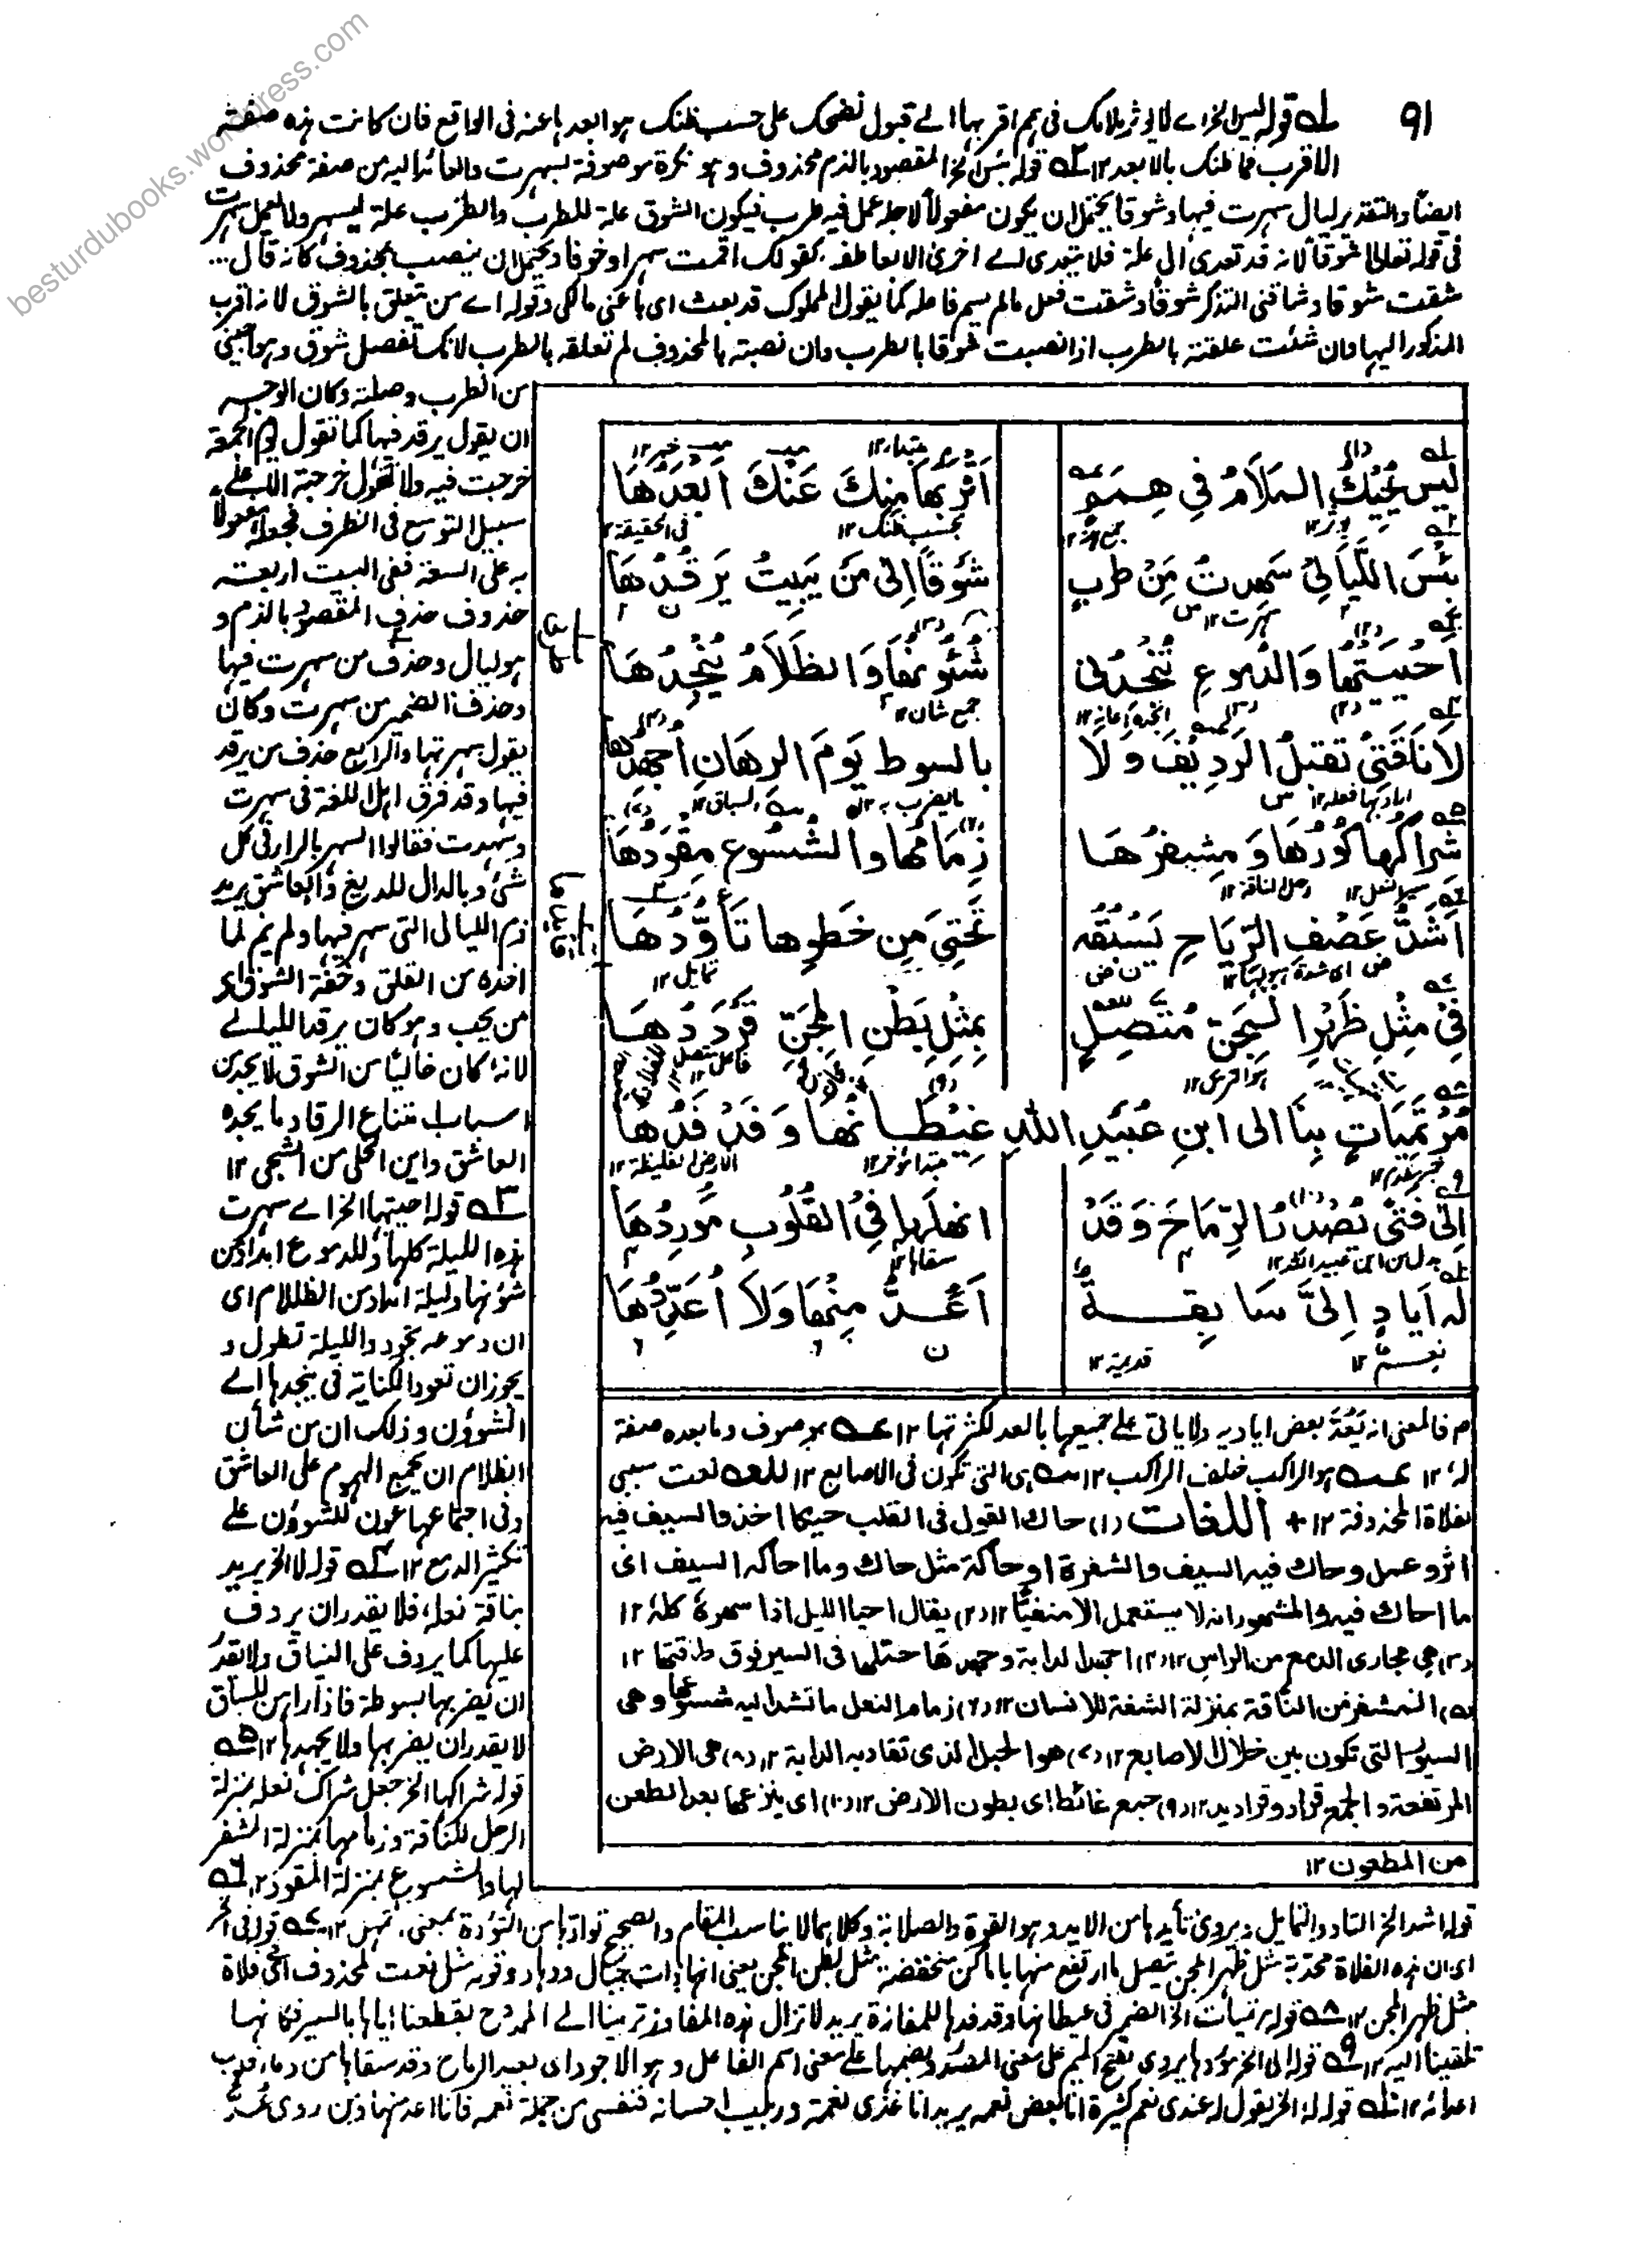 besturdubooks.wordpress.com
٩١
قوله ليس الخ اے لا يؤثر ملامك فى همم اقربها الے قبول نضحك على حسب ظنك هو ابعدها عنه فى الواقع فان كانت هذه صفته
الاقرب فما ظنك بالابعد ١٢ قوله بئس الخ المقصود بالذم محذوف وهو نكرة موصوفة لسهرت والعائد اليه من صفة محذوف
ايضا والتقدير ليال سهرت فيها وشوقا يحتمل ان يكون مفعولا لاجله عمل فيه طرب فيكون الشوق علة للطرب والطرب علة ليسهر ولا يعمل سهرت
فى قوله تعالى شوقا لانه قد تعدى الى علة فلا يتعدى لے اخرى الا بعاطف كقولك اقمت سهرا وخوفا ويحتمل ان ينصب بمحذوف كانه قال
شقت شوقا وشاقنى التذكر شوقا وشقت فعل مالم يسم فاعله كما يقول المملوك قد بعت اى باعنى مالكى وقوله اے من يتعلق بالشوق لانه اقرب
المذكور اليها وان شئت علقته بالطرب اذا نصبت شوقا بالطرب وان نصبته بالمحذوف لم تعلقه بالطرب لانك تفصل بشوق وهو اجنبى
من الطرب وصلته وكان الوجه
ان يقول يرقد فيها كما تقول يوم الجمعة
خرجت فيه ولا تقول خرجته الا على
سبيل التوسع فى الظرف فجعله مفعولا
به على السعة ففى البيت اربعة
حذوف حذف المقصود بالذم و
هو ليال وحذف من سهرت فيها
وحذف الضمير من سهرت وكان
يقول سهرتها والرابع حذف من يرقد
فيها وقد فرق اهل اللغة فى سهرت
وسهدت فقالوا السهر بالراء فى كل
شئ وبالدال للديغ والعاشق يريد
ذم الليالى التى سهر فيها ولم ينم لما
اخذه من القلق وخفة الشوق اى
من يحب وهو كان يرقد الليل لے
لانه كان خاليا من الشوق لا يجد من
اسباب امتناع الرقاد ما يجده
العاشق واين الخلى من الشجى ١٢
قوله احييتها الخ اے سهرت
هذه الليلة كلها وللدموع امداد من
شؤنها ولليلة امداد من الظلام اى
ان دموعه تجود والليلة تطول و
يجوز ان تعود الكناية فى ينجدها اے
الشؤون وذلك ان من شأن
الظلام ان يجمع الهموم على العاشق
وفى اجتماعها عون للشؤون على
تكثير الدمع ١٢ قوله لا الخ يريد
بناقة نعله فلا يقدر ان يردف
عليها كما يردف على النياق ولا يقدر
ان يضربها بسوطه فاذا راهن للسباق
لا يقدر ان يضربها ولا يجهدها ١٢
قوله شراكها الخ جعل شراك نعله بمنزلة
الرحل للناقة وزمامها بمنزلة المشفر
لها والشسوع بمنزلة المقود ١٢
لَيْسَ يُحِيْكُ الْمَلَامُ فِي هِمَمٍ
اَقْرَبُهَا مِنْكَ عَنْكَ اَبْعَدُهَا
بِئْسَ اللَّيَالِيْ سَهِدْتُ مِنْ طَرَبٍ
شَوْقًا اِلَى مَنْ يَبِيْتُ يَرْقُدُهَا
اَحْيَيْتُهَا وَالدُّمُوْعُ تُنْجِدُنِي
شُئُوْنُهَا وَالظَّلَامُ يُنْجِدُهَا
لَا نَاقَتِيْ تَقْبَلُ الرَّدِيْفَ وَلَا
بِالسَّوْطِ يَوْمَ الرِّهَانِ اُجْهِدُهَا
شِرَاكُهَا كُوْرُهَا وَمِشْفَرُهَا
زِمَامُهَا وَالشُّسُوْعُ مِقْوَدُهَا
اَشَدُّ عَصْفِ الرِّيَاحِ يَسْبُقُهُ
تَحْتِيْ مِنْ خَطْوِهَا تَأَوُّدُهَا
فِيْ مِثْلِ ظَهْرِ الْمِجَنِّ مُتَّصِلٍ
بِمِثْلِ بَطْنِ الْمِجَنِّ قَرْدَدُهَا
مُرْتَمِيَاتٌ بِنَا اِلَى ابْنِ عُبَيْدِ اللّٰهِ غِيْطَانُهَا وَفَدْفَدُهَا
اِلَى فَتًى يُصْدِرُ الرِّمَاحَ وَقَدْ
اَنْهَلَهَا فِي الْقُلُوْبِ مَوْرِدُهَا
لَهُ اَيَادٍ اِلَيَّ سَابِقَةٌ
اَعُدُّ مِنْهَا وَلَا اُعَدِّدُهَا
م فالمعنى انه يعد بعض اياديه ولا ياتى على جميعها بالعد لكثرتها ١٢ موصوف وما بعده صفة
له ١٢ هو الراكب خلف الراكب ١٢ هى التى تكون فى الاصابع ١٢ نعت سببى
لفلاة المحذوفة ١٢ + اللغات (١) حاك القول فى القلب حيكا اخذ والسيف فيه
اثر وعمل وحاك فيه السيف والشفرة او حاكة مثل حاك وما احاكه السيف اى
ما احاك فيه والمشهور انه لا يستعمل الا منفيا ١٢ (٢) يقال احيا الليل اذا سهره كله ١٢
(٣) هى مجارى الدمع من الراس ١٢ (٤) اجهد الدابة وجهدها حملها فى السير فوق طاقتها ١٢
(٥) المشفر من الناقة بمنزلة الشفة للانسان ١٢ (٦) زمام النعل ما تشد اليه شسوعها وهى
السيور التى تكون بين خلال الاصابع ١٢ (٧) هو الحبل الذى تقاد به الدابة ١٢ (٨) هى الارض
المرتفعة والجمع قراد وقراديد ١٢ (٩) جمع غائط اى بطون الارض ١٢ (١٠) اى ينزعها بعد الطعن
من المطعون ١٢
قوله اشد الخ التاود التمايل ويروى تأيدها من الايد وهو القوة والصلابة وكلاهما لا يناسب المقام والصحيح تواؤدها من التؤدة بمعنى تمهل ١٢ قوله فى الخ
اى ان هذه الفلاة محدبة مثل ظهر المجن يتصل ما ارتفع منها باماكن منخفضة مثل بطن المجن يعنى انها ذات جبال ووهاد وقوله مثل نعت لمحذوف اى فى فلاة
مثل ظهر المجن ١٢ قوله مرتميات الخ الضمير فى غيطانها وفدفدها للمفازة يريد لا تزال هذه المفاوز ترمينا الے الممدوح بقطعنا اياها بالسير فكانها
تلقينا اليه ١٢ قوله الى الخ موردها يروى بفتح الميم على معنى المصدر وبضمها على معنى اسم الفاعل وهو الاجود اى يصدر الرماح وقد سقاها من دماء قلوب
اعدائه ١٢ قوله له الخ يقول له عندى نعم كثيرة انا بعض نعمه يريد انا غذى نعمته وربيب احسانه فنفسى من جملة نعمه فانا اعد منها ومن روى اعد